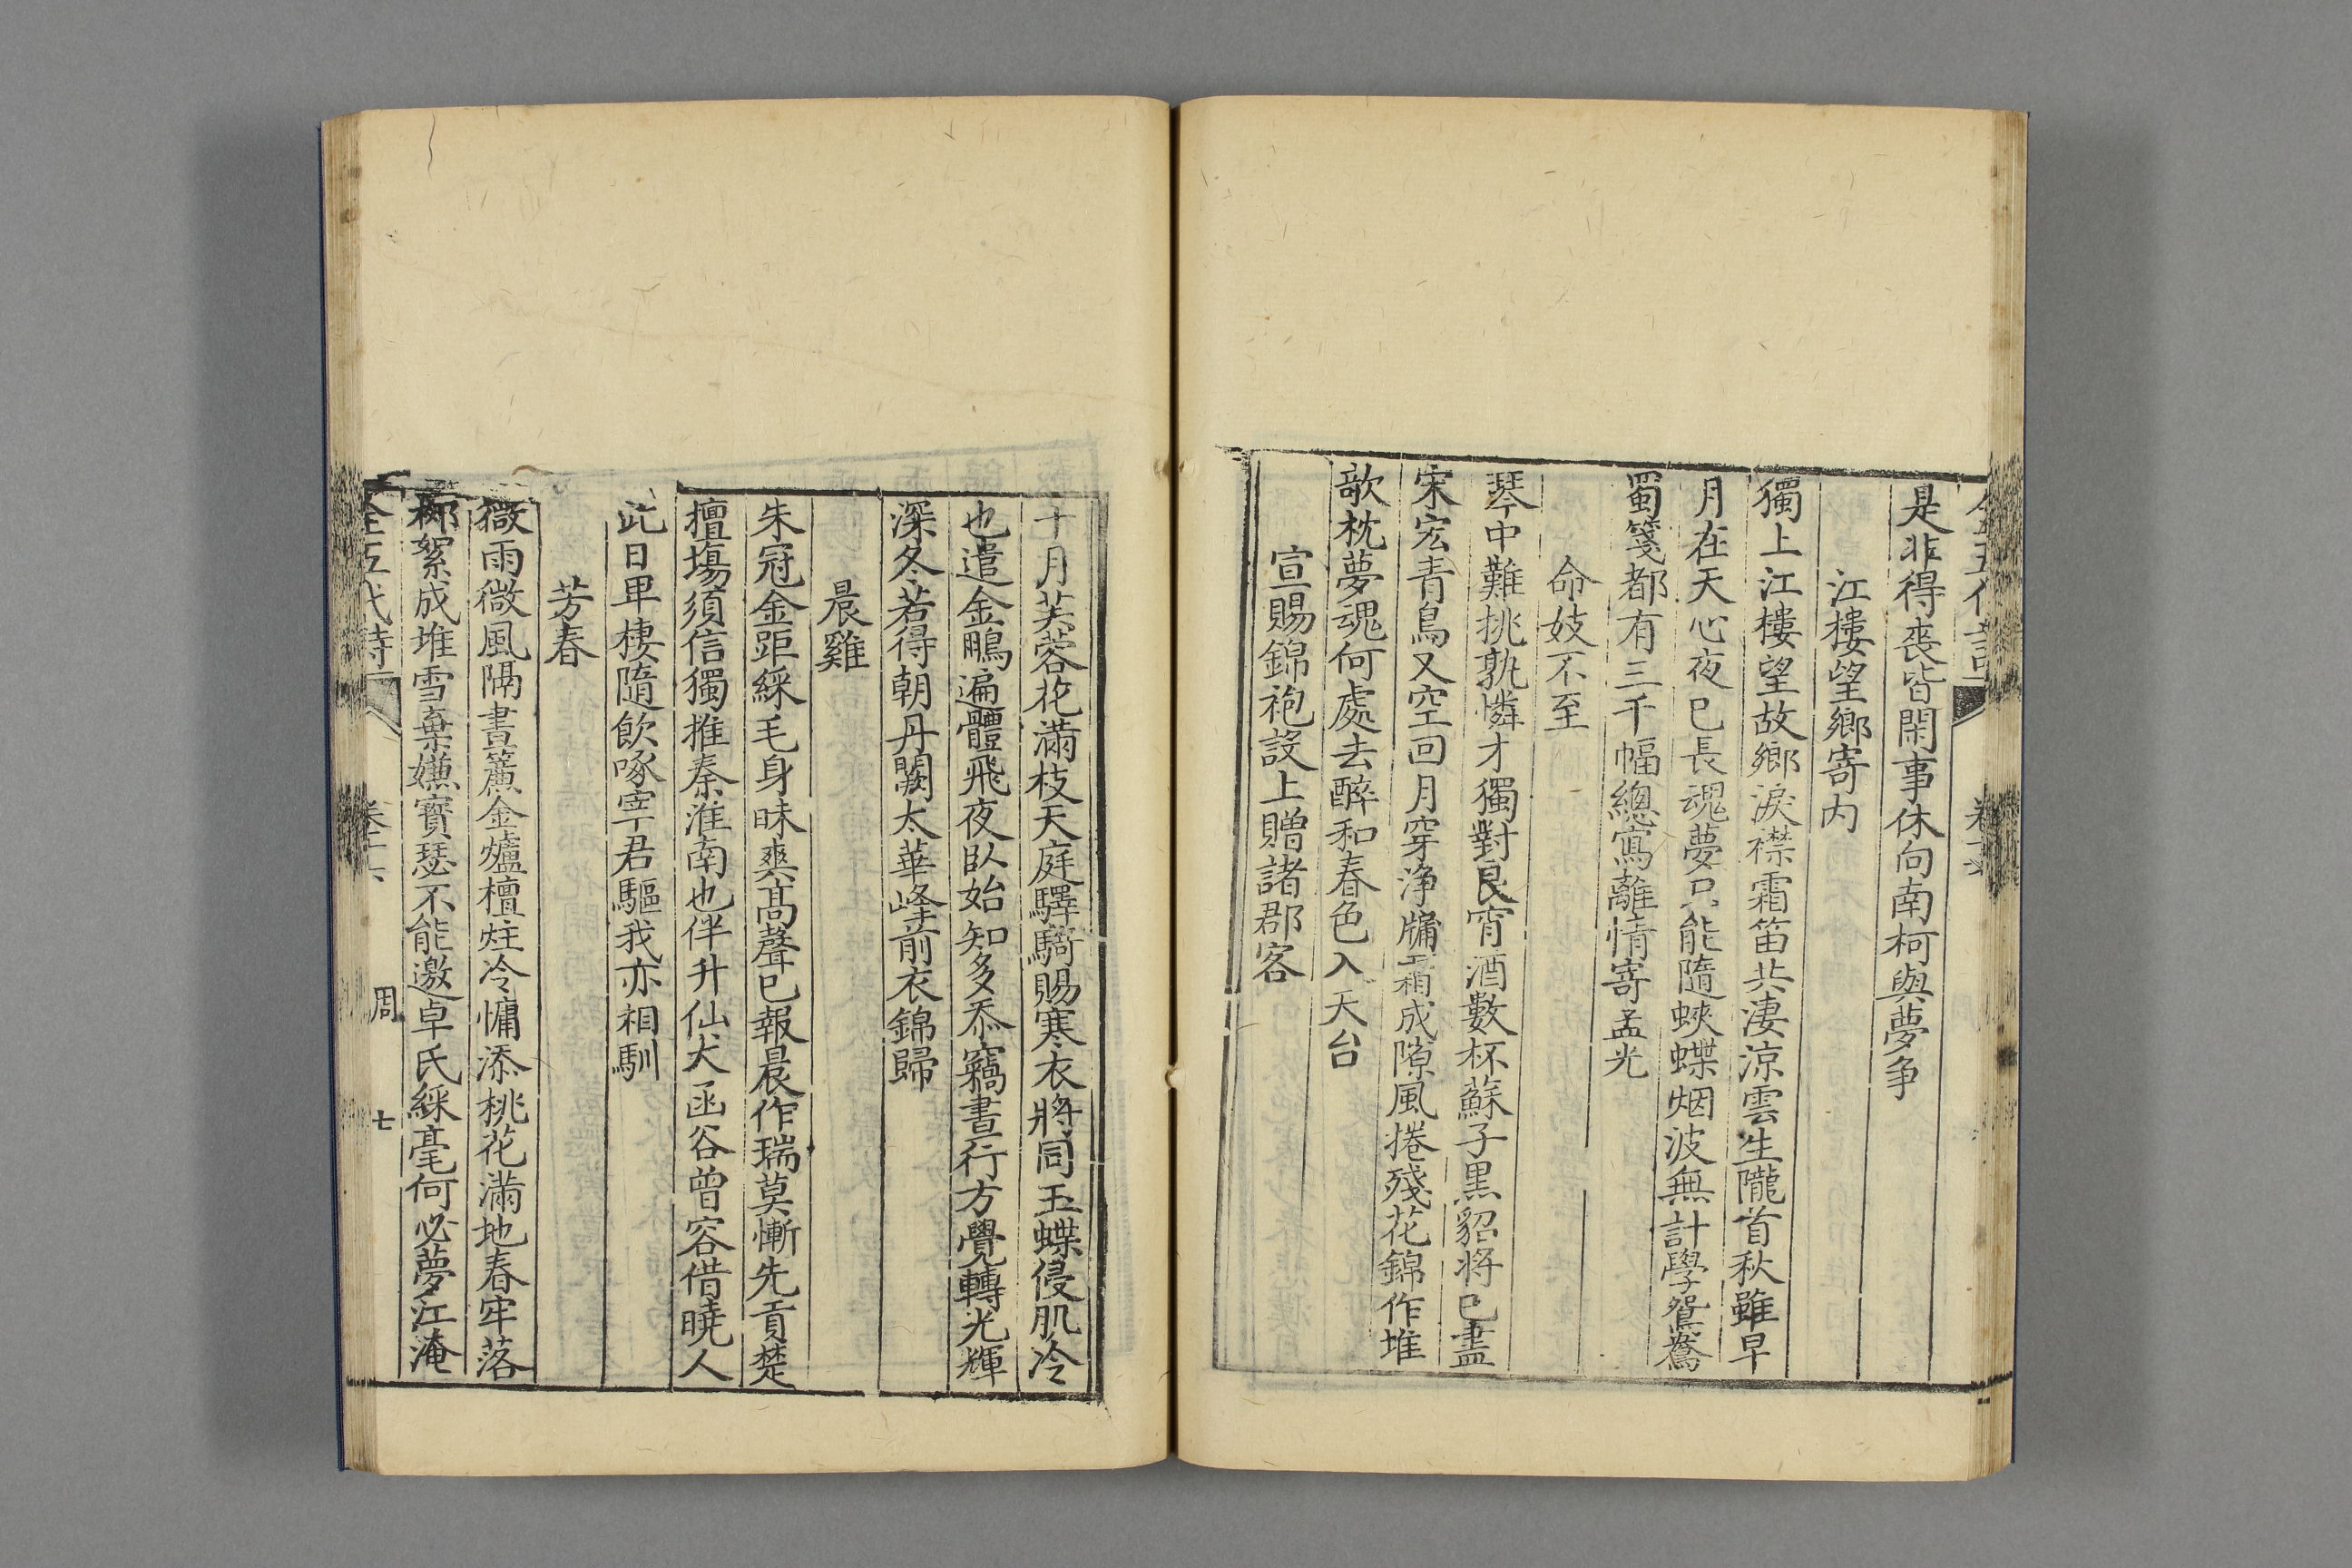 是非得喪皆閑事休向南柯與夢爭
江樓望鄉寄内
獨上江樓望故鄉淚襟霜笛共淒涼雲生隴首秋雖早
月在天心夜已長魂夢只能隨蛺蝶烟波無計學鴛鴦
蜀箋都有三千幅總寫離情寄孟光
命妓不至
琴中難挑孰憐才獨對良宵酒數杯蘇子黒貂將已盡
宋宏青鳥又空回月穿浄牖霜成隙風捲殘花錦作堆
欹枕夢魂何處去醉和春色入天台
宣賜錦袍設上贈諸郡客
十月芙蓉花滿枝天庭驛騎賜寒衣將同玉蝶侵肌冷
也遣金鵰遍體飛夜臥始知多忝竊晝行方覺轉光輝
深冬若得朝丹闕太華峰前衣錦歸
晨雞
朱冠金距綵毛身昧爽高聲已報晨作瑞莫慚先貢楚
擅塲須信獨推秦淮南也伴升仙犬函谷曾容借曉人
此日卑棲隨飲啄宰君驅我亦相馴
芳春
微雨微風隔晝簾金爐檀炷冷慵添桃花滿地春牢落
柳絮成堆雪棄嫌寳瑟不能邀卓氏綵毫何必夢江淹
全五代詩 卷十六 周 七